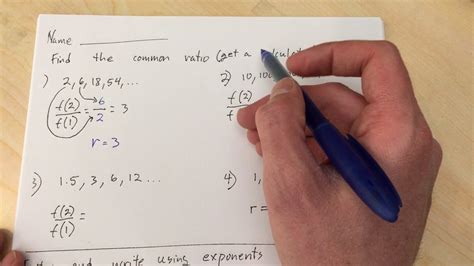 Name
Find the common ratio (get a
1) 2, 6, 18, 54, ...
f(2)/f(1) = 6/2 = 3
r = 3
2) 10, 100
f(2)
f
3) 1.5, 3, 6, 12 ...
f(2)/f(1) =
4) 1,
r =
and write using exponents